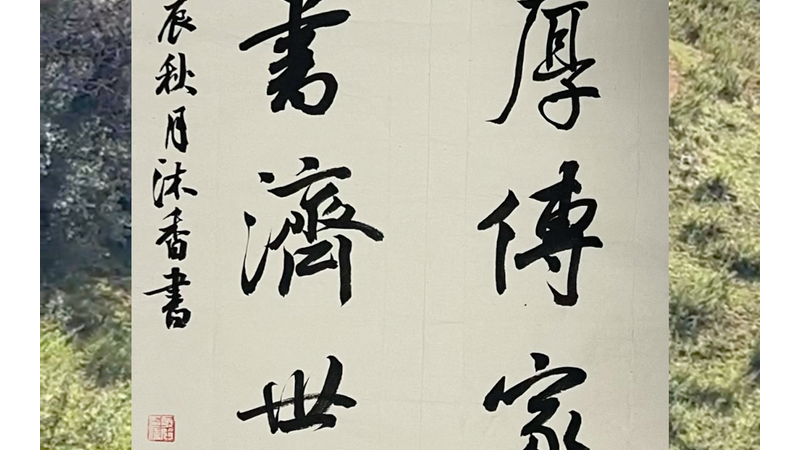 厚傳家
書濟世
辰秋月沐香書